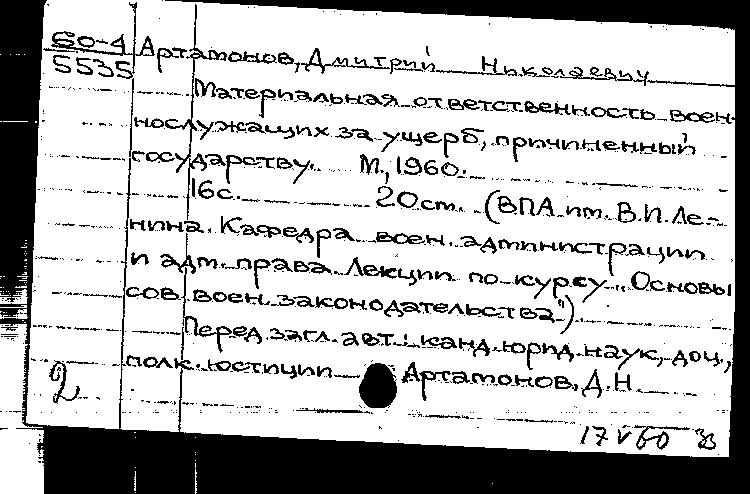 60-4 Артамонов, Дмитрий Николаевич
5535
Материальная ответственность воен-
нослужащих за ущерб, причиненный
государству. М., 1960.
16с. 20см. (ВПА им. В.И. Ле-
нина. Кафедра воен. администрации
и адм. права. Лекции по курсу „Основы
сов. воен. законодательства").
Перед загл. авт.: канд. юрид. наук, доц.,
полк. юстиции Артамонов, Д.Н.
2
17 V 60